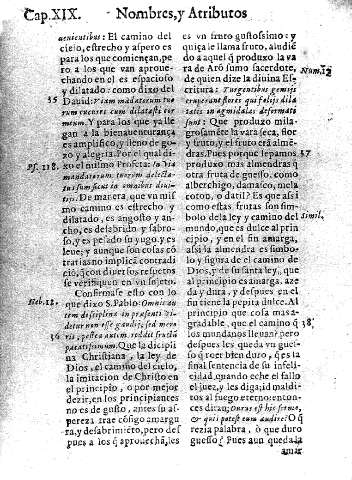 Cap.XIX. Nombres, y Atributos
uenientibus: El camino del
cielo, estrecho y aspero es
para los que comiençan, pe-
ro a los que van aproue-
chando en el es espacioso
y dilatado: como dixo del
35 Dauid: Viam mandatorum tuo-
rum cucurri cum dilatasti cor
meum. Y para los que ya lle
gan a la bienauenturança
es amplifico, y lleno de go-
zo y alegria. Por el qual di-
xo el mismo Profeta: In via
Ps. 118. mandatorum tuorum delecta-
tus sum sicut in omnibus diui-
tijs. De manera, que vn mis
mo camino es estrecho y
dilatado, es angosto y an-
cho, es desabrido y sabro-
so, y es pesado su yugo, y es
leue; y aunque son cosas cõ
trarias no implica contradi
ció, q̃ con diuersos respetos
se verifiquen en vn sujeto.
Confirmase esto con lo
Heb. 12. que dixo S. Pablo: Omnis au
tem disciplina in præsenti vi-
detur non esse gaudij, sed mœro
36 ris; postea autem reddit fructũ
pacatissimum. Que la dicipli
na Christiana, la ley de
Dios, el camino del cielo,
la imitacion de Christo en
el principio, o por mejor
dezir, en los principiantes
no es de gusto, antes su as-
pereza trae cõsigo amargu
ra, y desabrimiẽto, pero des
pues a los q̃ aprouechã, les
es vn fruto gustosimo: y
quiça le llama fruto, aludiẽ
do a aquel q̃ produxo la va
ra de Arõ sumo sacerdote,
de quien dize la diuina Es- Num. 17
critura: Turgentibus gemmis
eruperant flores qui folijs dila
tatis in amigdalas deformati
sunt: Que produxo mila-
grosamẽte la vara seca, flor
y fruto, y el fruto erã almẽ-
dras. Pues porque sepamos 37
produxo mas almendras q̃
otra fruta de guesso, como
alberchigo, damasco, melo
coton, o datil? Es que assi
como estas frutas son sim-
bolo de la ley y camino del Simil.
mundo, que es dulce al prin
cipio, y en el fin amarga,
assi la almendra es simbo-
lo y figura de el camino de
Dios, y de su santa ley, que
al principio es amarga, aze
da y dura, y despues en el
fin tiene la pepita dulce. Al
principio que cosa mas a-
gradable, que el camino q̃ 38
los mundanos lleuan? pero
despues les queda vn gues-
so q̃ roer bien duro, q̃ es la
final sentencia de su infeli-
cidad, quando eche el fallo
el juez, y les diga; id maldi-
tos al fuego eterno: enton-
ces diran; Durus est hic sermo,
& quis potest eum audire? O q̃
rezia palabra, ò que duro
guesso! Pues aun queda la
amar